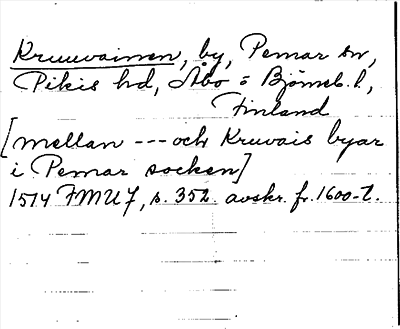 Kruuvainen, by, Pemar sn,
Pikis hd, Åbo = Björneb. l.,
Finland
[mellan --- och Kruvais byar
i Pemar socken]
1514 FMU 7, s. 352. avskr. fr. 1600-t.